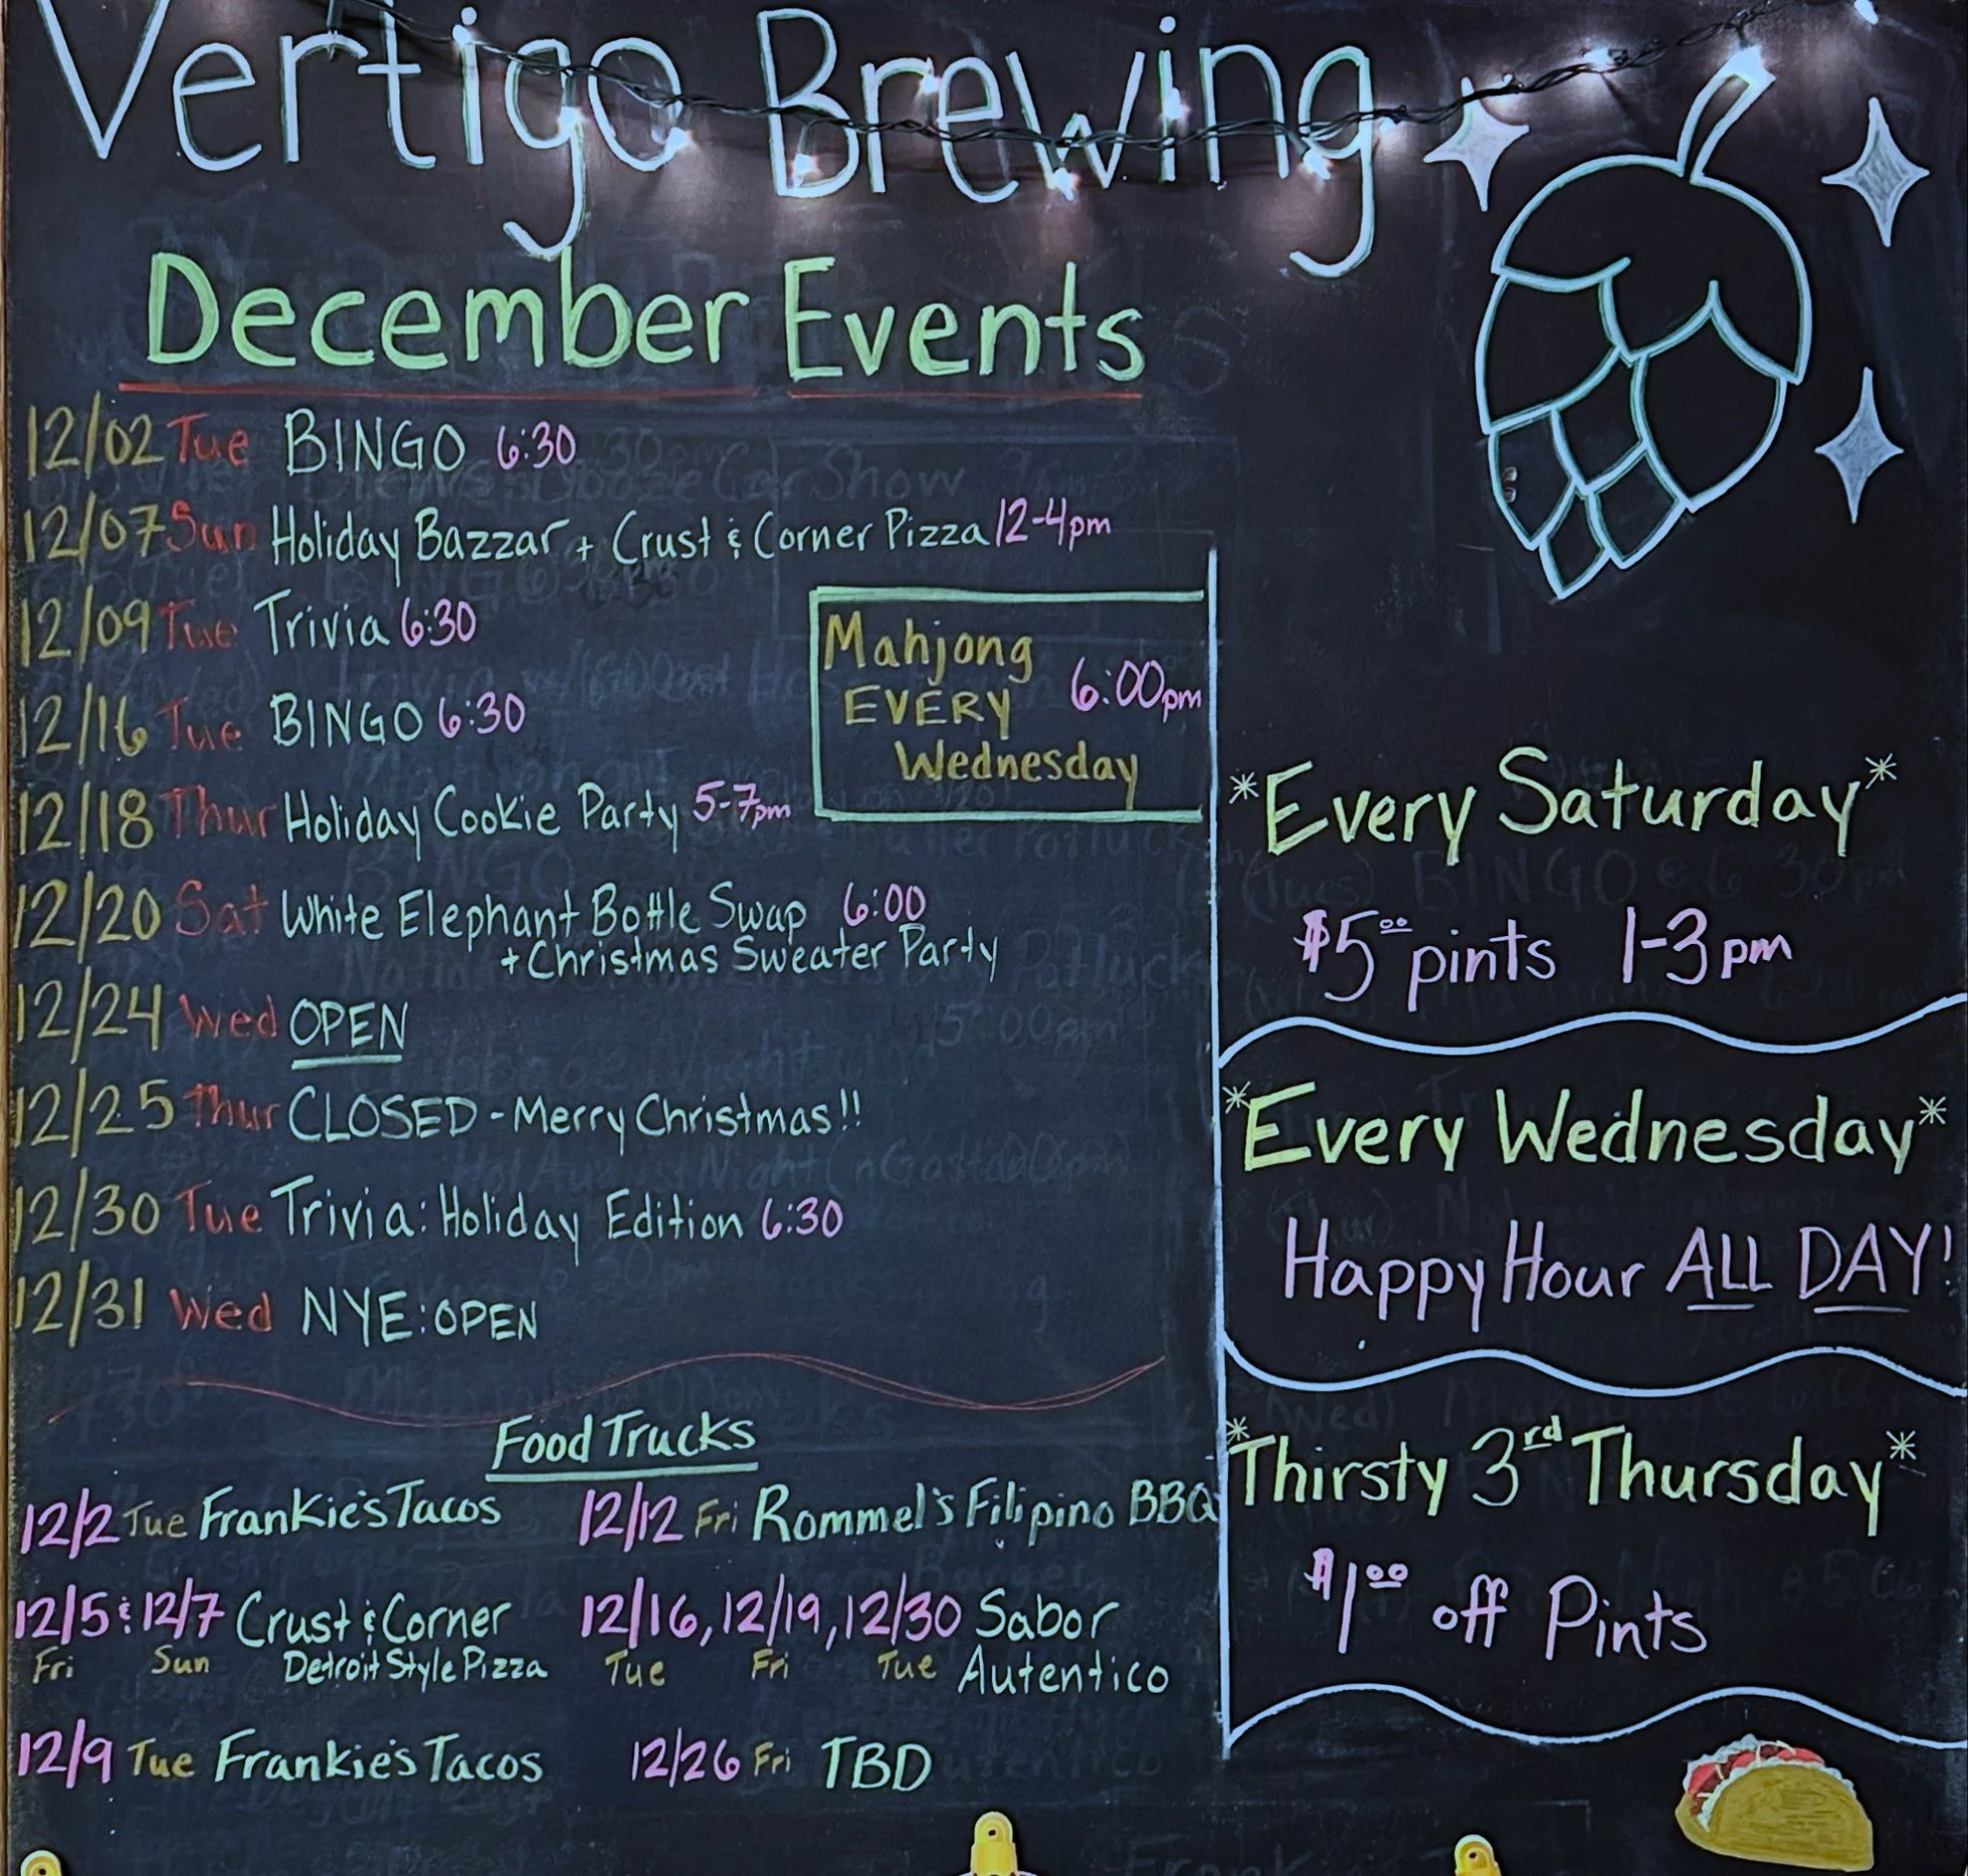 Vertigo Brewing
December Events
12/02 Tue BINGO 6:30
12/07 Sun Holiday Bazzar + Crust & Corner Pizza 12-4pm
12/09 Tue Trivia 6:30
12/16 Tue BINGO 6:30
12/18 Thur Holiday Cookie Party 5-7pm
12/20 Sat White Elephant Bottle Swap 6:00
+ Christmas Sweater Party
12/24 Wed OPEN
12/25 Thur CLOSED - Merry Christmas!!
12/30 Tue Trivia: Holiday Edition 6:30
12/31 Wed NYE: OPEN
Mahjong
EVERY 6:00pm
Wednesday
Food Trucks
12/2 Tue Frankie's Tacos
12/5 & 12/7 Crust & Corner
Fri Sun Detroit Style Pizza
12/9 Tue Frankie's Tacos
12/12 Fri Rommel's Filipino BBQ
12/16, 12/19, 12/30 Sabor
Tue Fri Tue Autentico
12/26 Fri TBD
*Every Saturday*
$5.00 pints 1-3pm
*Every Wednesday*
Happy Hour ALL DAY!
*Thirsty 3rd Thursday*
$1.00 off Pints